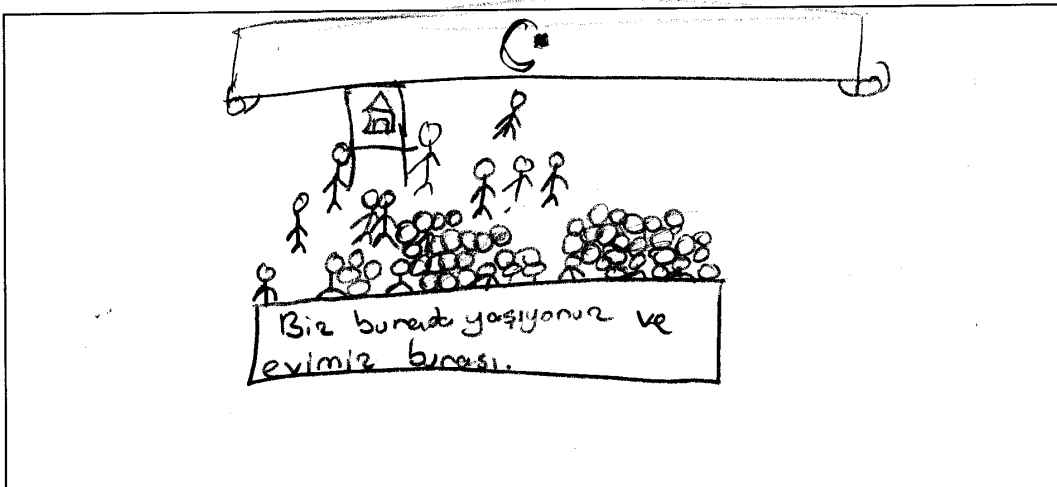 Biz burada yaşıyoruz ve
evimiz burası.